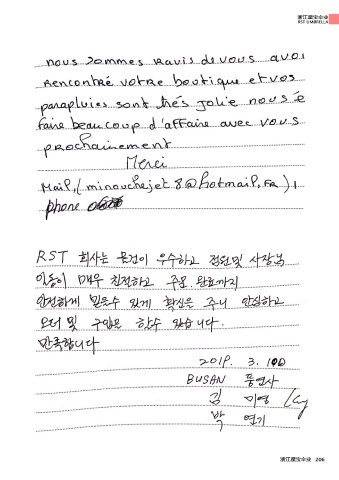 浙江星宝伞业
RST UMBRELLA
nous sommes Ravis de vous avoi
Rencontré votre boutique et vos
parapluies sont trés Jolie nous
faire beaucoup d'affaire avec vous
prochainement
Merci
Mail,(minouchejet8@hotmail,FR),
phone
RST 회사는 물건이 우수하고 점원및 사장님
매우 친절하고 주문 완료까지
안전하게 믿을수 있게 확신을 주니 안심하고
오더 및 구입을 할수 있습니다.
만족합니다
2019. 3.
BUSAN
김 미영
박 연기
浙江星宝伞业 206